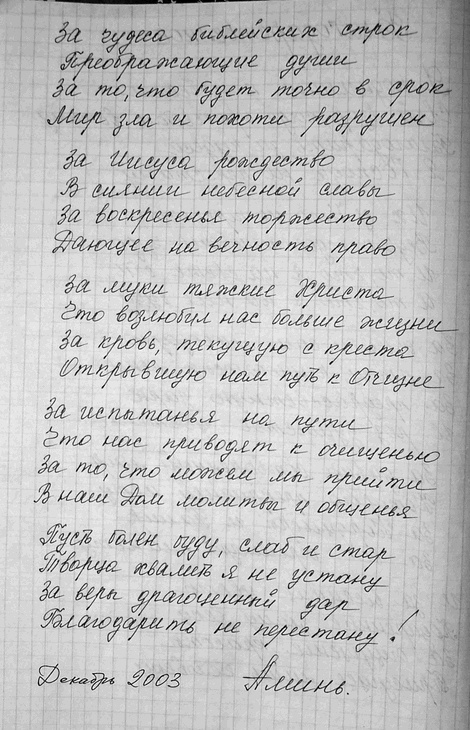 За чудеса библейских строк
Преображающие души
За то, что будет точно в срок
Мир зла и похоти разрушен
За Иисуса рождество
В сиянии небесной славы
За воскресенья торжество
Дающее на вечность право
За муки тяжские Христа
Что возлюбил нас больше жизни
За кровь, текущую с креста
Открывшую нам путь к Отчизне
За испытанья на пути
Что нас приводят к очищенью
За то, что можем мы прийти
В наш Дом молитвы и общенья
Пусть болен буду, слаб и стар
Творца хвалить я не устану
За веры драгоценный дар
Благодарить не перестану!
Декабрь 2003 Аминь.